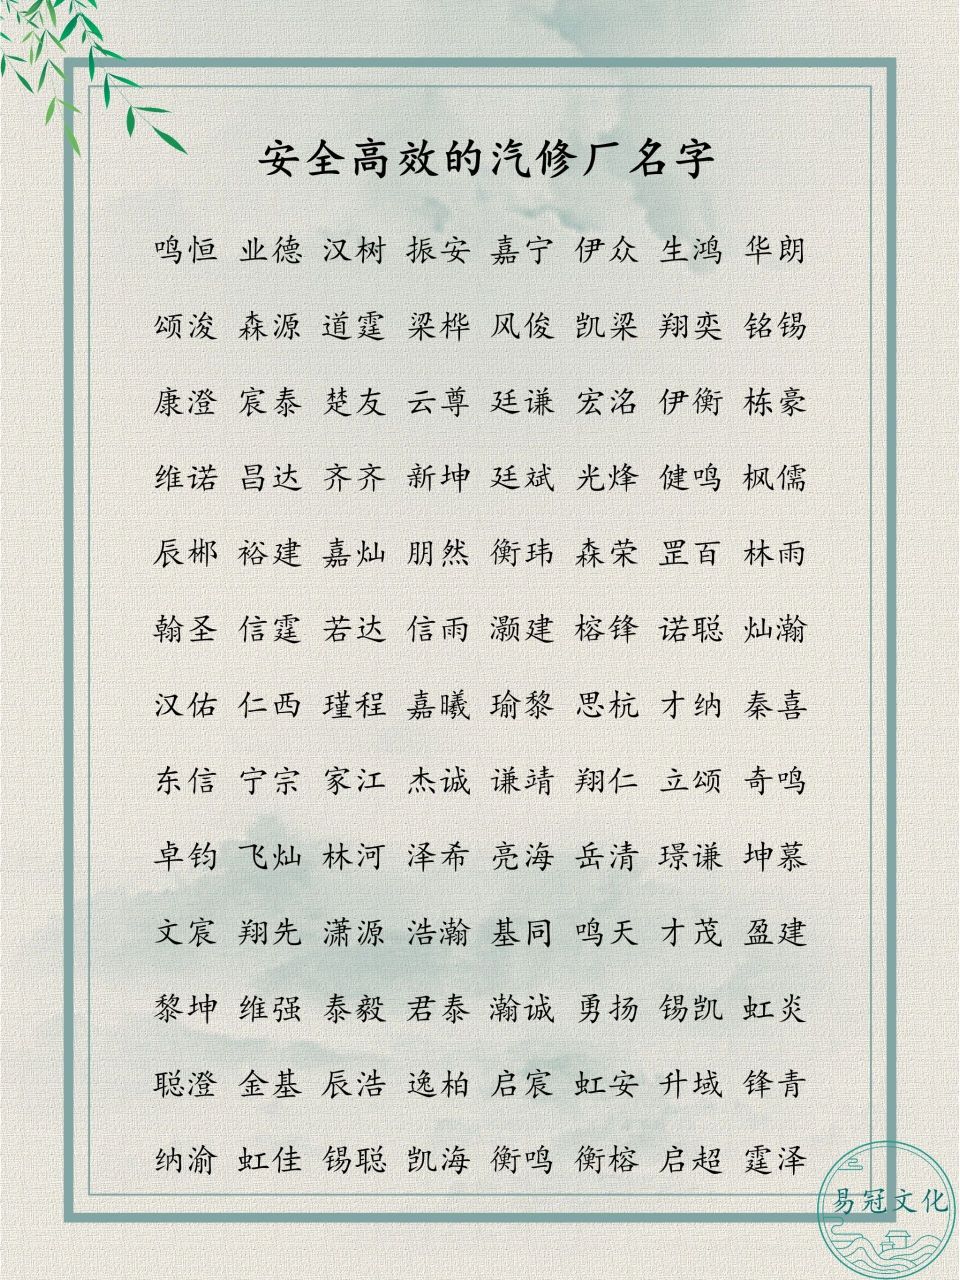 安全高效的汽修厂名字
鸣恒 业德 汉树 振安 嘉宁 伊众 生鸿 华朗
颂浚 森源 道霆 梁桦 风俊 凯梁 翔奕 铭锡
康澄 宸泰 楚友 云尊 廷谦 宏洺 伊衡 栋豪
维诺 昌达 齐齐 新坤 廷斌 光烽 健鸣 枫儒
辰郴 裕建 嘉灿 朋然 衡玮 森荣 罡百 林雨
翰圣 信霆 若达 信雨 灏建 榕锋 诺聪 灿瀚
汉佑 仁西 瑾程 嘉曦 瑜黎 思杭 才纳 秦喜
东信 宁宗 家江 杰诚 谦靖 翔仁 立颂 奇鸣
卓钧 飞灿 林河 泽希 亮海 岳清 璟谦 坤慕
文宸 翔先 潇源 浩瀚 基同 鸣天 才茂 盈建
黎坤 维强 泰毅 君泰 瀚诚 勇扬 锡凯 虹炎
聪澄 金基 辰浩 逸柏 启宸 虹安 升域 锋青
纳渝 虹佳 锡聪 凯海 衡鸣 衡榕 启超 霆泽
易冠文化